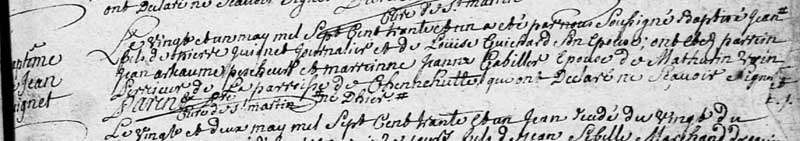 ont déclaré ne sçavoir signer
Curé de St martin
Baptême
de Jean
Guignet
Le vingt et un may mil Sept Cent trante et un a eté par nous Soussigné Baptisé Jean
fils de Pierre Guignet Journalier et de Louise Guichard Son Epouse; ont eté parrin
Jean arkaume pescheur et marrainne Jeanne Gabiller Epouse de Mathurin
Perrieur de La parroisse de Chennehutte qui ont Declaré ne Sçavoir Signer
Curé de St martin
Le vingt et deux may mil Sept Cent trante et un Jean du vingt du
fils de Jean Sibille Marchand